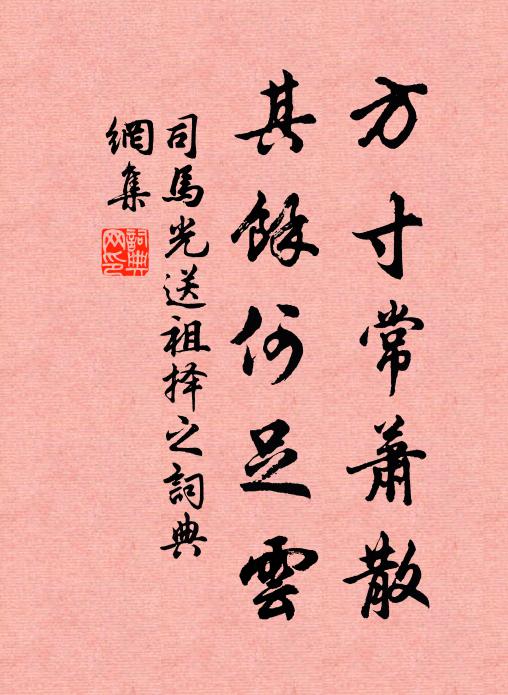 方寸常蕭散
其餘何足雲
司馬光送祖择之詞典
網集
詞典
网印